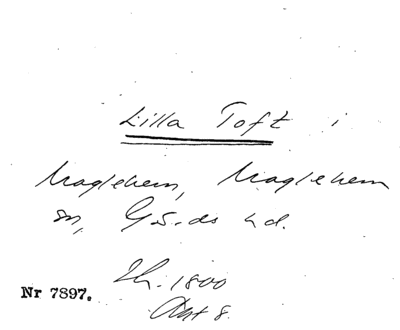 Lilla Toft i
Maglehem, Maglehem
sn, G-s-ds hd.
Th. 1800
Nr 7897.
Akt 8.